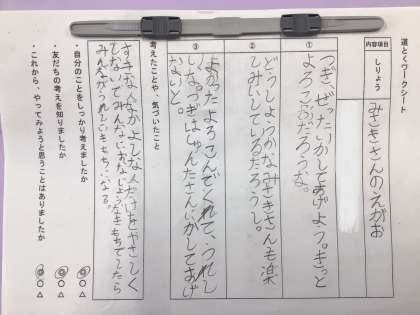 道とくワークシート
内容項目
しりょう
みさきさんのえがお
①
つぎ、ぜったいかしてあげよう。きっと
よろこぶだろうな。
②
どうしようかな、みさきさんも楽
しみにしているだろうし。
③
よかったよろこんでくれて、うれし
いな。
ないと。
考えたことや、気づいたこと
すきな
しないでみんなにおなじようなきもちでしたら
みんながうれしいきもちになる。
・自分のことをしっかり考えましたか ◎ ○ △
・友だちの考えを知りましたか ◎ ○ △
・これから、やってみようと思うことはありましたか ◎ ○ △